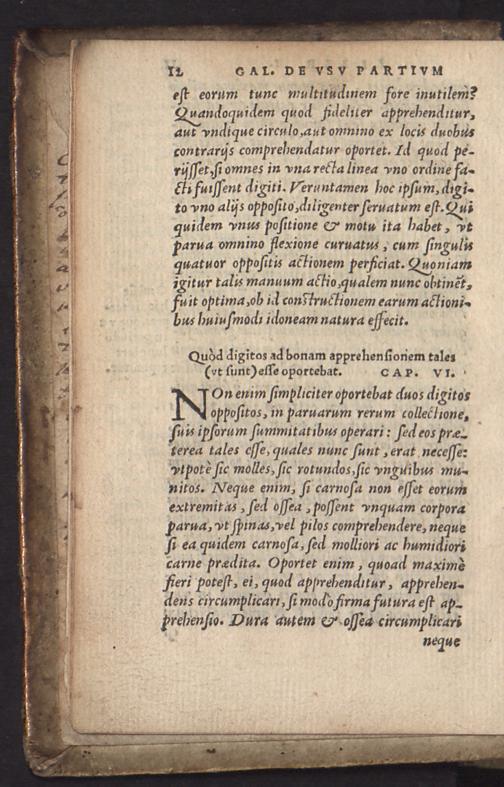 12 GAL. DE VSV PARTIVM
est eorum tunc multitudinem fore inutilem?
Quandoquidem quod fideliter apprehenditur,
aut vndique circulo, aut omnino ex locis duobus
contrarijs comprehendatur oportet. Id quod pe-
rijsset, si omnes in vna recta linea vno ordine fa-
cti fuissent digiti. Veruntamen hoc ipsum, digi-
to vno alijs opposito, diligenter seruatum est. Qui
quidem vnus positione & motu ita habet, vt
parua omnino flexione curuatus, cum singulis
quatuor oppositis actionem perficiat. Quoniam
igitur talis manuum actio, qualem nunc obtinēt,
fuit optima, ob id constructionem earum actioni-
bus huiusmodi idoneam natura effecit.
Quòd digitos ad bonam apprehensionem tales
(vt sunt) esse oportebat. CAP. VI.
NOn enim simpliciter oportebat duos digitos
oppositos, in paruarum rerum collectione,
suis ipsorum summitatibus operari: sed eos præ-
terea tales esse, quales nunc sunt, erat necesse:
vtpotè sic molles, sic rotundos, sic vnguibus mu-
nitos. Neque enim, si carnosa non esset eorum
extremitas, sed ossea, possent vnquam corpora
parua, vt spinas, vel pilos comprehendere, neque
si ea quidem carnosa, sed molliori ac humidiori
carne prædita. Oportet enim, quoad maximè
fieri potest, ei, quod apprehenditur, apprehen-
dens circumplicari, si modò firma futura est ap-
prehensio. Dura autem & ossea circumplicari
neque